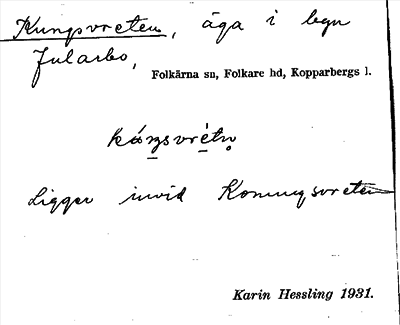 Kungsvreten, äga i byn
Jularbo,
Folkärna sn, Folkare hd, Kopparbergs l.
Ligger invid Konungsvreten
Karin Hessling 1931.